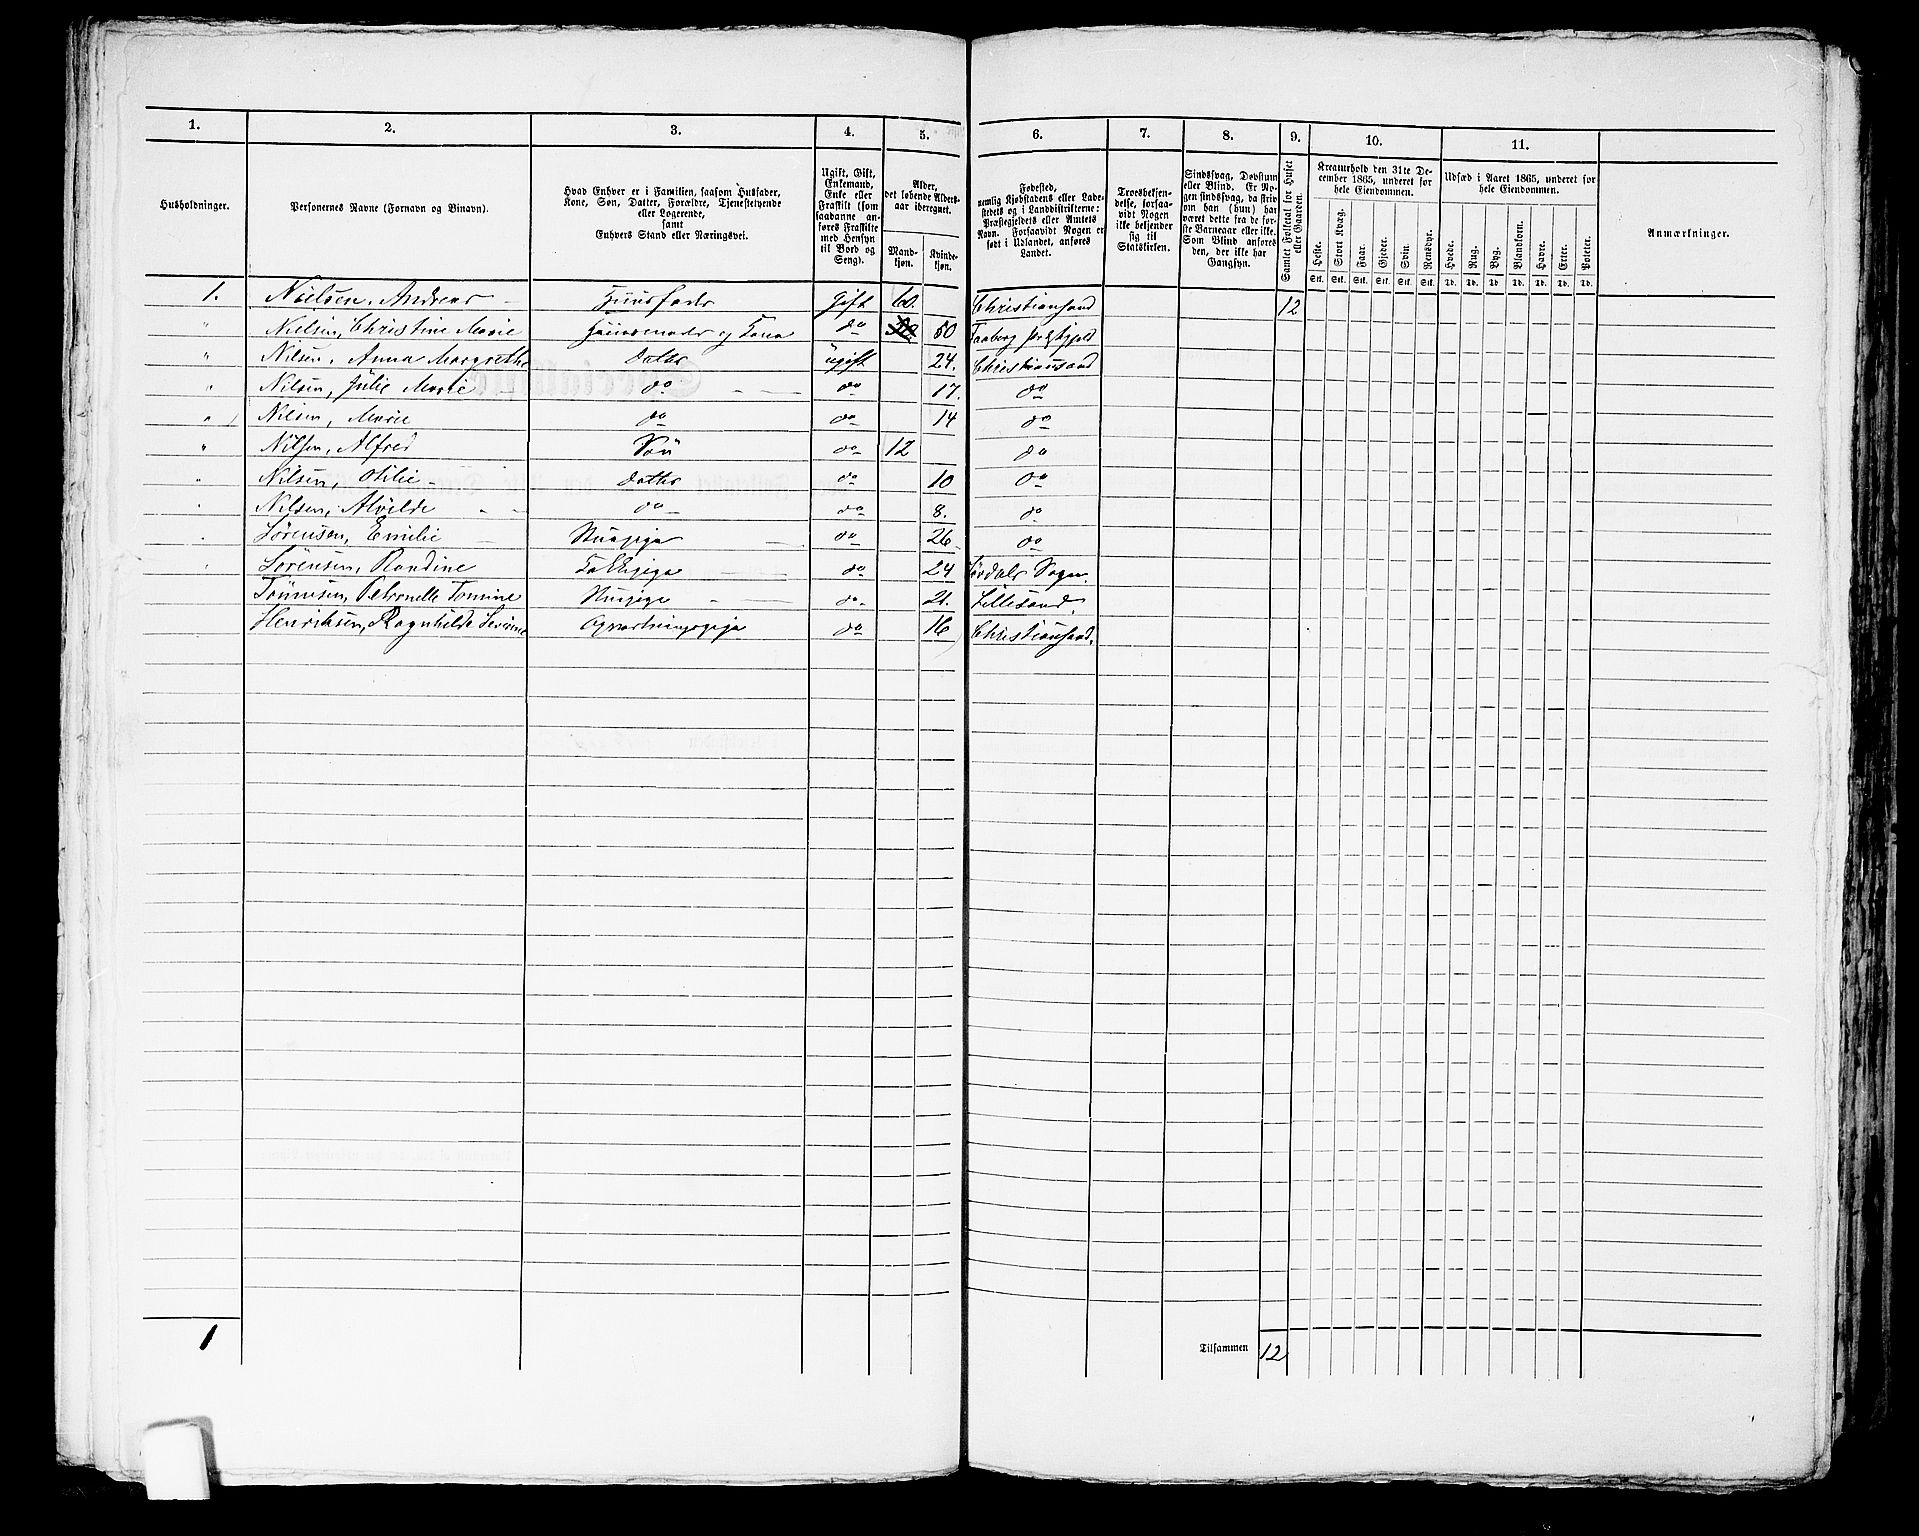 1. 2. 3. 4. 5. 6. 7. 8. 9. 10. 11.
Husholdninger.
Personernes Navne (Fornavn og Binavn).
Hvad Enhver er i Familien, saasom Husfader,
Kone, Søn, Datter, Forældre, Tjenestetyende
eller Logerende,
samt
Enhvers Stand eller Næringsvei.
Ugift, Gift,
Enkemand,
Enke eller
Fraskilt (som
saadanne an-
føres Fraskilte
med Hensyn
til Bord og
Seng).
Alder,
det løbende Alders-
aar iberegnet.
Mand-
kjøn.
Kvinde-
kjøn.
Fødested,
nemlig Kjøbstadens eller Lade-
stedets og i Landdistrikterne:
Præstegjeldets eller Amtets
Navn. Forsaavidt Nogen er
født i Udlandet, anføres
Landet.
Troesbekjen-
delse, forsaa-
vidt Nogen
ikke bekjender
sig til
Statskirken.
Sindssvag, Døvstum
eller Blind. Er No-
gen sindssvag, da skriv
om han (hun) har
været dette fra de før-
ste Barneaar eller ikke.
Som Blind anføres
den, der ikke har
Gangsyn.
Samlet Folketal for Huset
eller Gaarden.
Kreaturhold den 31te De-
cember 1865, underet for
hele Eiendommen.
Heste. Stort Kvæg. Faar. Gjeder. Svin. Rensdyr.
Stk. Stk. Stk. Stk. Stk. Stk.
Udsæd i Aaret 1865, underet for
hele Eiendommen.
Hvede. Rug. Byg. Blandkorn. Havre. Erter. Poteter.
Td. Td. Td. Td. Td. Td. Td.
Anmærkninger.
1. Nielsen, Andreas Huusfader Gift 60. Christiansand 12
" Nielsen, Christine Marie Huusmoder og Kone do 50 Faaberg
" Nilsen, Anna Margrethe Datter ugift 24. Christiansand
" Nilsen, Julie Marie do do 17. do
" Nilsen, Marie do do 14 do
" Nilsen, Alfred Søn do 12 do
" Nilsen, Otilie Datter do 10 do
" Nilsen, Alvilde do do 8. do
" Sørensen, Emilie Stuepige do 26 do
" Sørensen, Randine Kokkepige do 24 Sogn.
Tønnesen, Petronelle Tomine Stuepige do 21. Lillesand.
Henriksen, Ragnhilde Severine Opvartningspige do 16 Christiansand.
1 Tilsammen 12